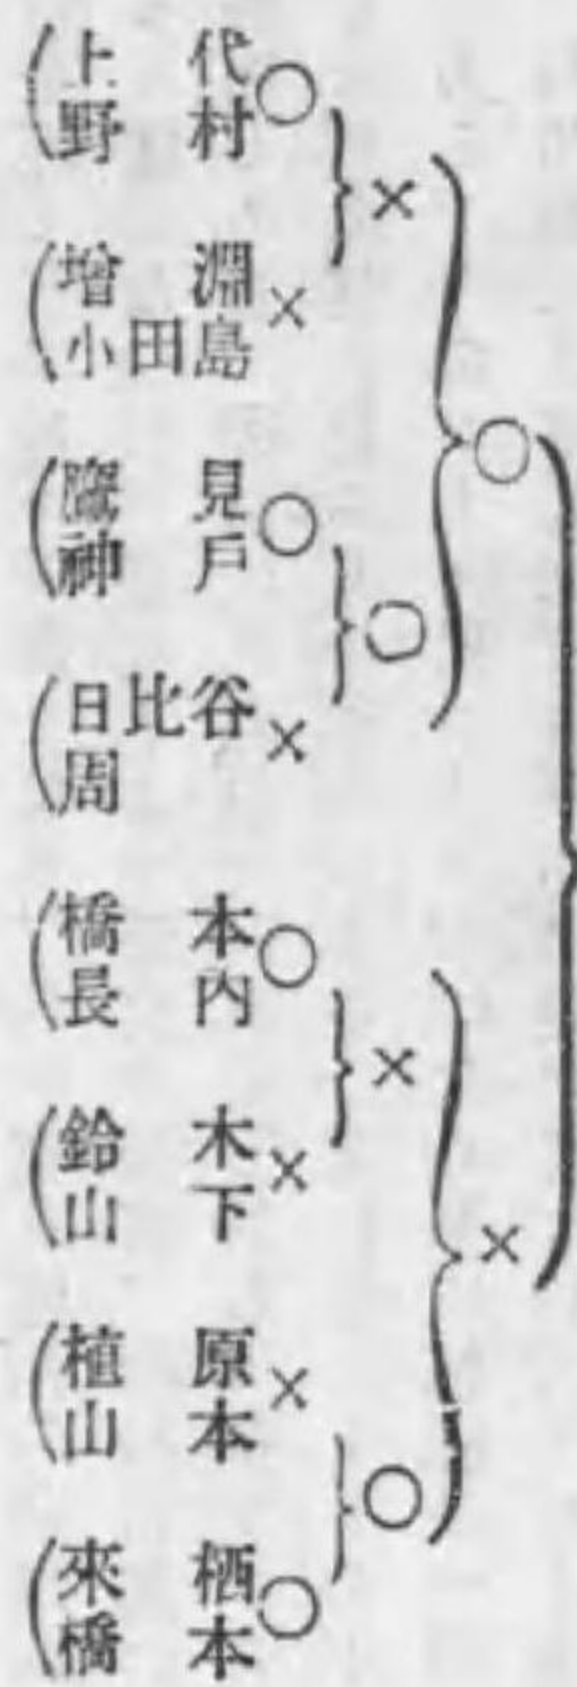 上代○
野村
增淵×
小田島
鷹見○
神戶
日比谷×
周
橋本○
長內
鈴木×
山下
植原×
山本
來栖○
橋本
×
○
×
○
○
×